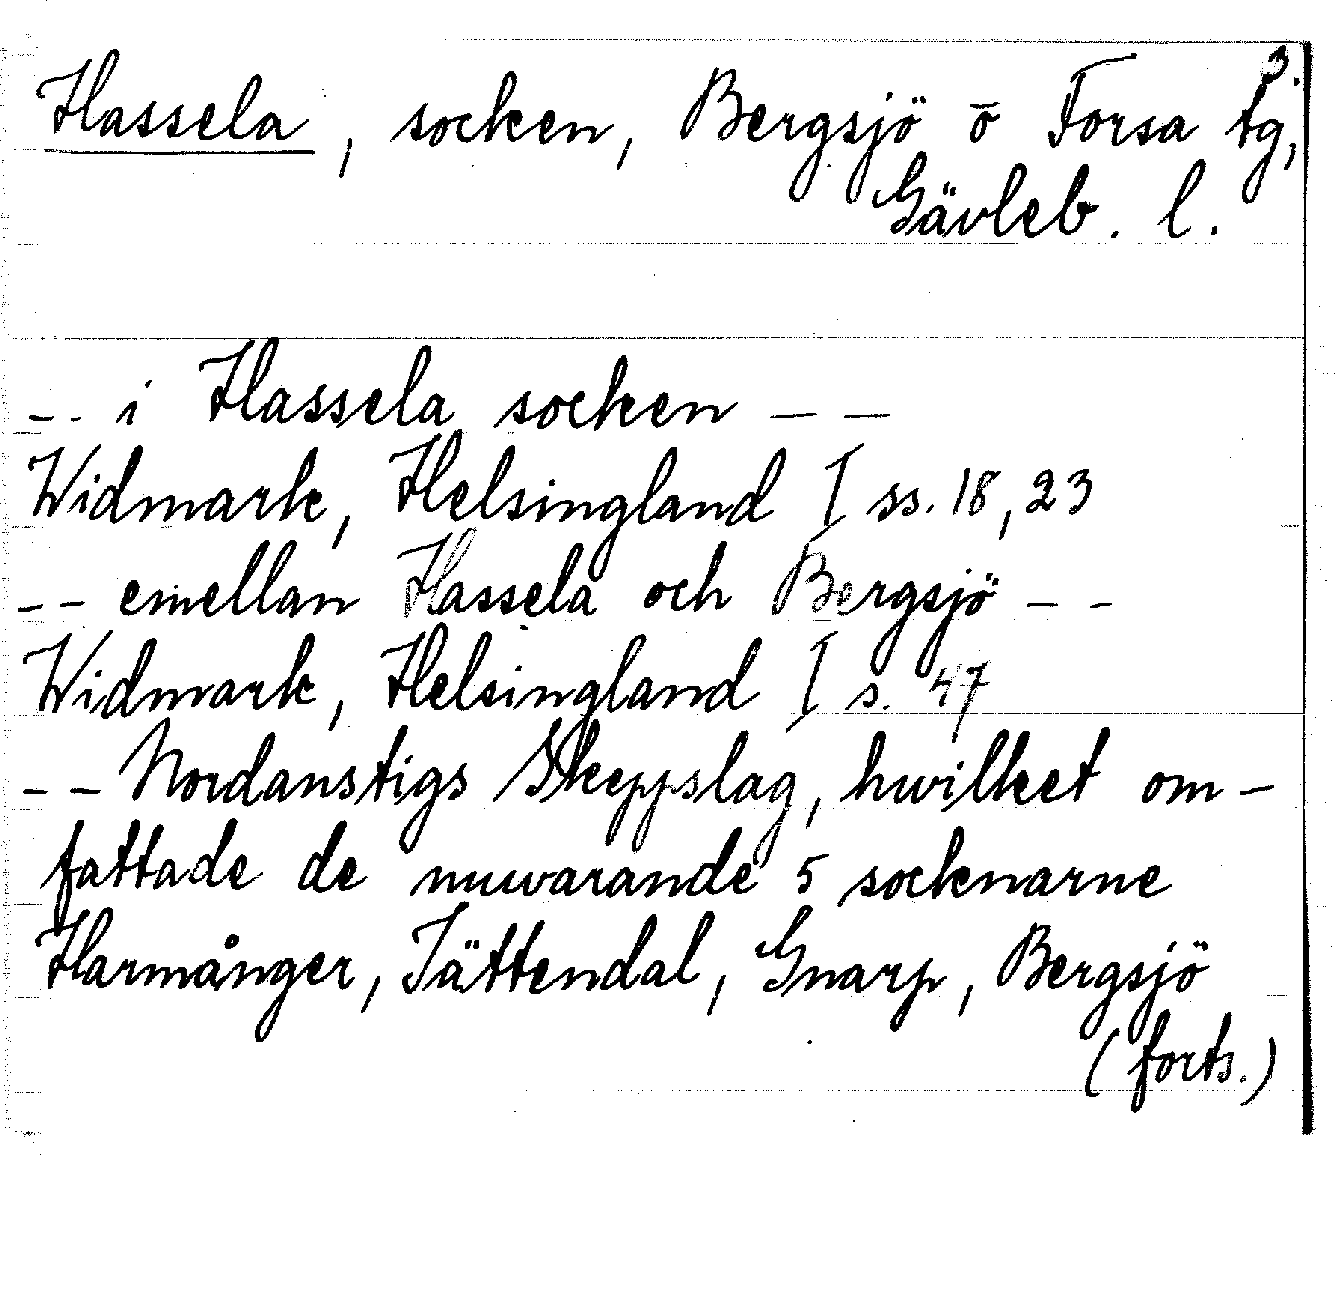 3.
Hassela, socken, Bergsjö o Forsa tg,
Gävleb. l.
-- i Hassela socken --
Widmark, Helsingland I ss. 18, 23
-- emellan Hassela och Bergsjö --
Widmark, Helsingland I s. 47
-- Nordanstigs Skeppslag, hwilket om-
fattade de nuwarande 5 socknarne
Harmånger, Jättendal, Gnarp, Bergsjö
(forts.)